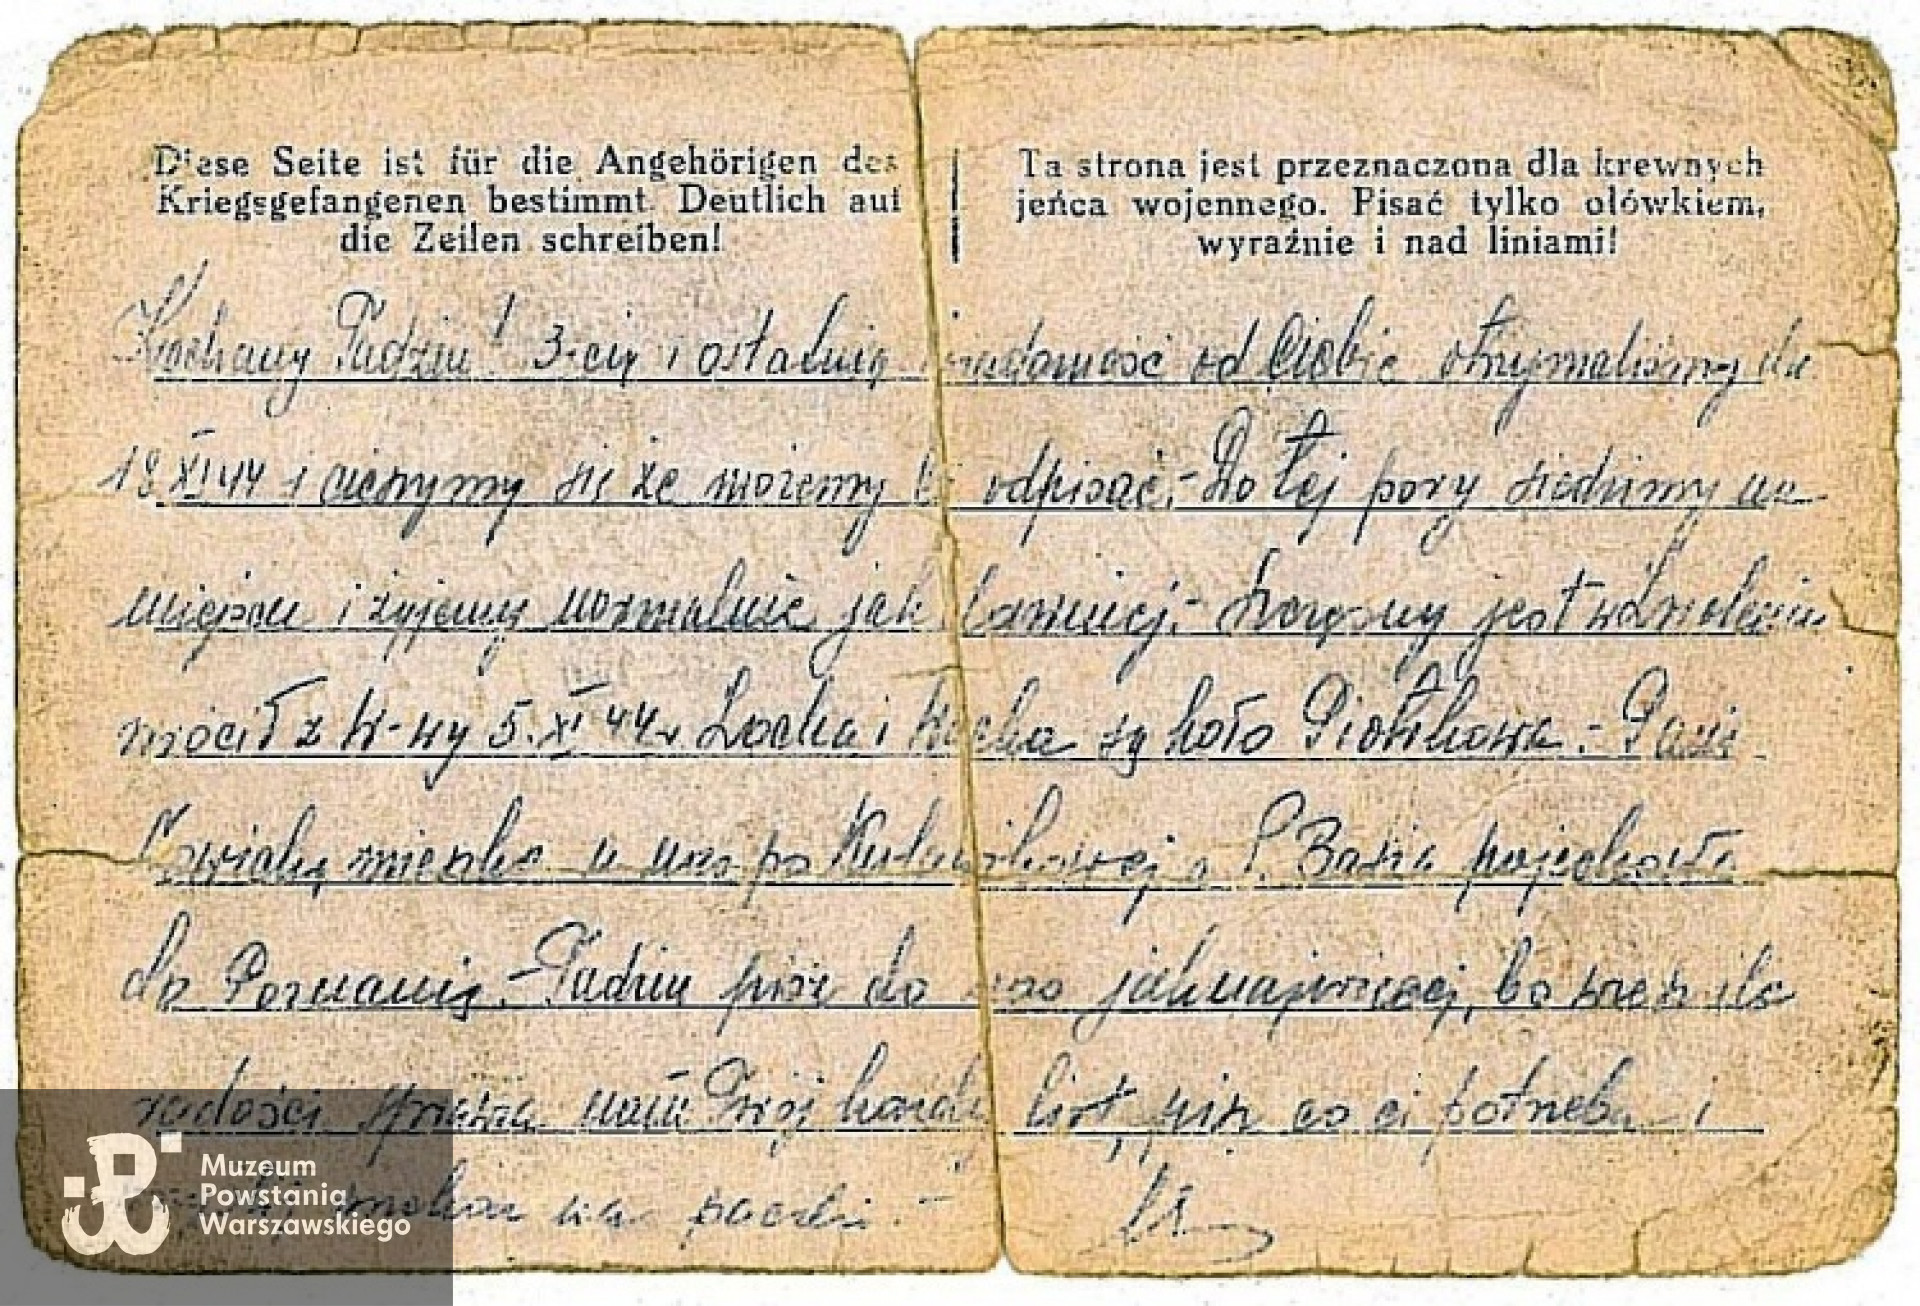 Diese Seite ist für die Angehörigen des
Kriegsgefangenen bestimmt. Deutlich auf
die Zeilen schreiben!
Ta strona jest przeznaczona dla krewnych
jeńca wojennego. Pisać tylko ołówkiem,
wyraźnie i nad liniami!
Kochany Tadziu! 3-cią i ostatnią wiadomość od Ciebie otrzymaliśmy dn.
18 XI 44 i cieszymy się że możemy Ci odpisać.- Do tej pory siedzimy na
miejscu i żyjemy normalnie jak dawniej.- jest w Zwoleniu
wrócił z W-wy 5.XI 44r i są koło Piotrkowa.- Pani
mieszka u nas po a P. Basia pojechała
do Poznania.- Tadziu pisz do nas jaknajwięcej, bo wiesz ile
radości sprawia nam Twój każdy list, pisz co ci potrzeba i
na paczki.-
Muzeum
Powstania
Warszawskiego